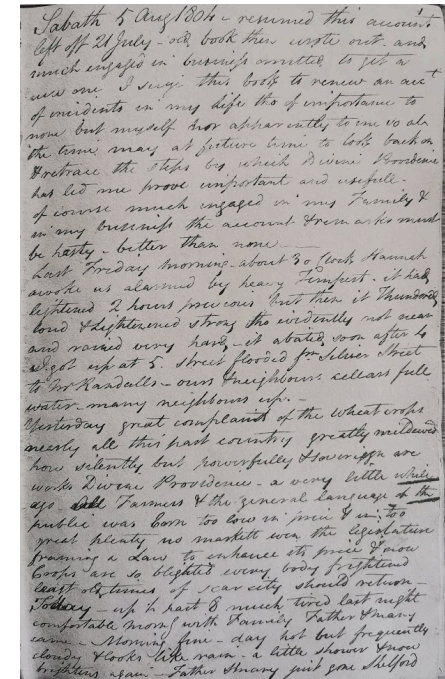 Sabath 5 Aug 1804 - resumed this account
left off 21 July - old book then wrote out and
much engaged in business omitted to get a
new one I seize this book to renew an acct
of incidents in my life tho of importance to
none but myself nor apparently to me so at
the time may at future time to look back on
& retrace the steps by which Divine Providence
has led me prove important and usefull -
of course much engaged in my Family &
in my business the account & remarks must
be hasty - better than none
Last Friday Morning - about 3 o Clock Hannah
awoke us alarmed by heavy Tempest - it had
lightened 2 hours previous but then it Thundred
loud & Lightened strong tho evidently not near
and rained very hard - it abated soon after 4
I got up at 5. Street flooded fm Silver Street
to Mr Randalls - ours & neighbours cellars full
water - many neighbours up. -
Yesterday great complaint of the wheat crops
nearly all this part country greatly mildewed
how silently but powerfully & Sovereign are
works Divine Providence - a very little while
ago Farmers & the general language of the
public was Corn too low in price & in too
great plenty no markett even the legislature
framing a Law to enhance its price & now
Crops are so blighted every body frightened
least old times of scarcity should return -
Today - up ½ past 8 much tired last night
comfortable morng with Family Father & Mary
came - Morning fine - day hot but frequently
cloudy & looks like rain - a little shower & now
brightens again - Father & Mary just gone Shelford